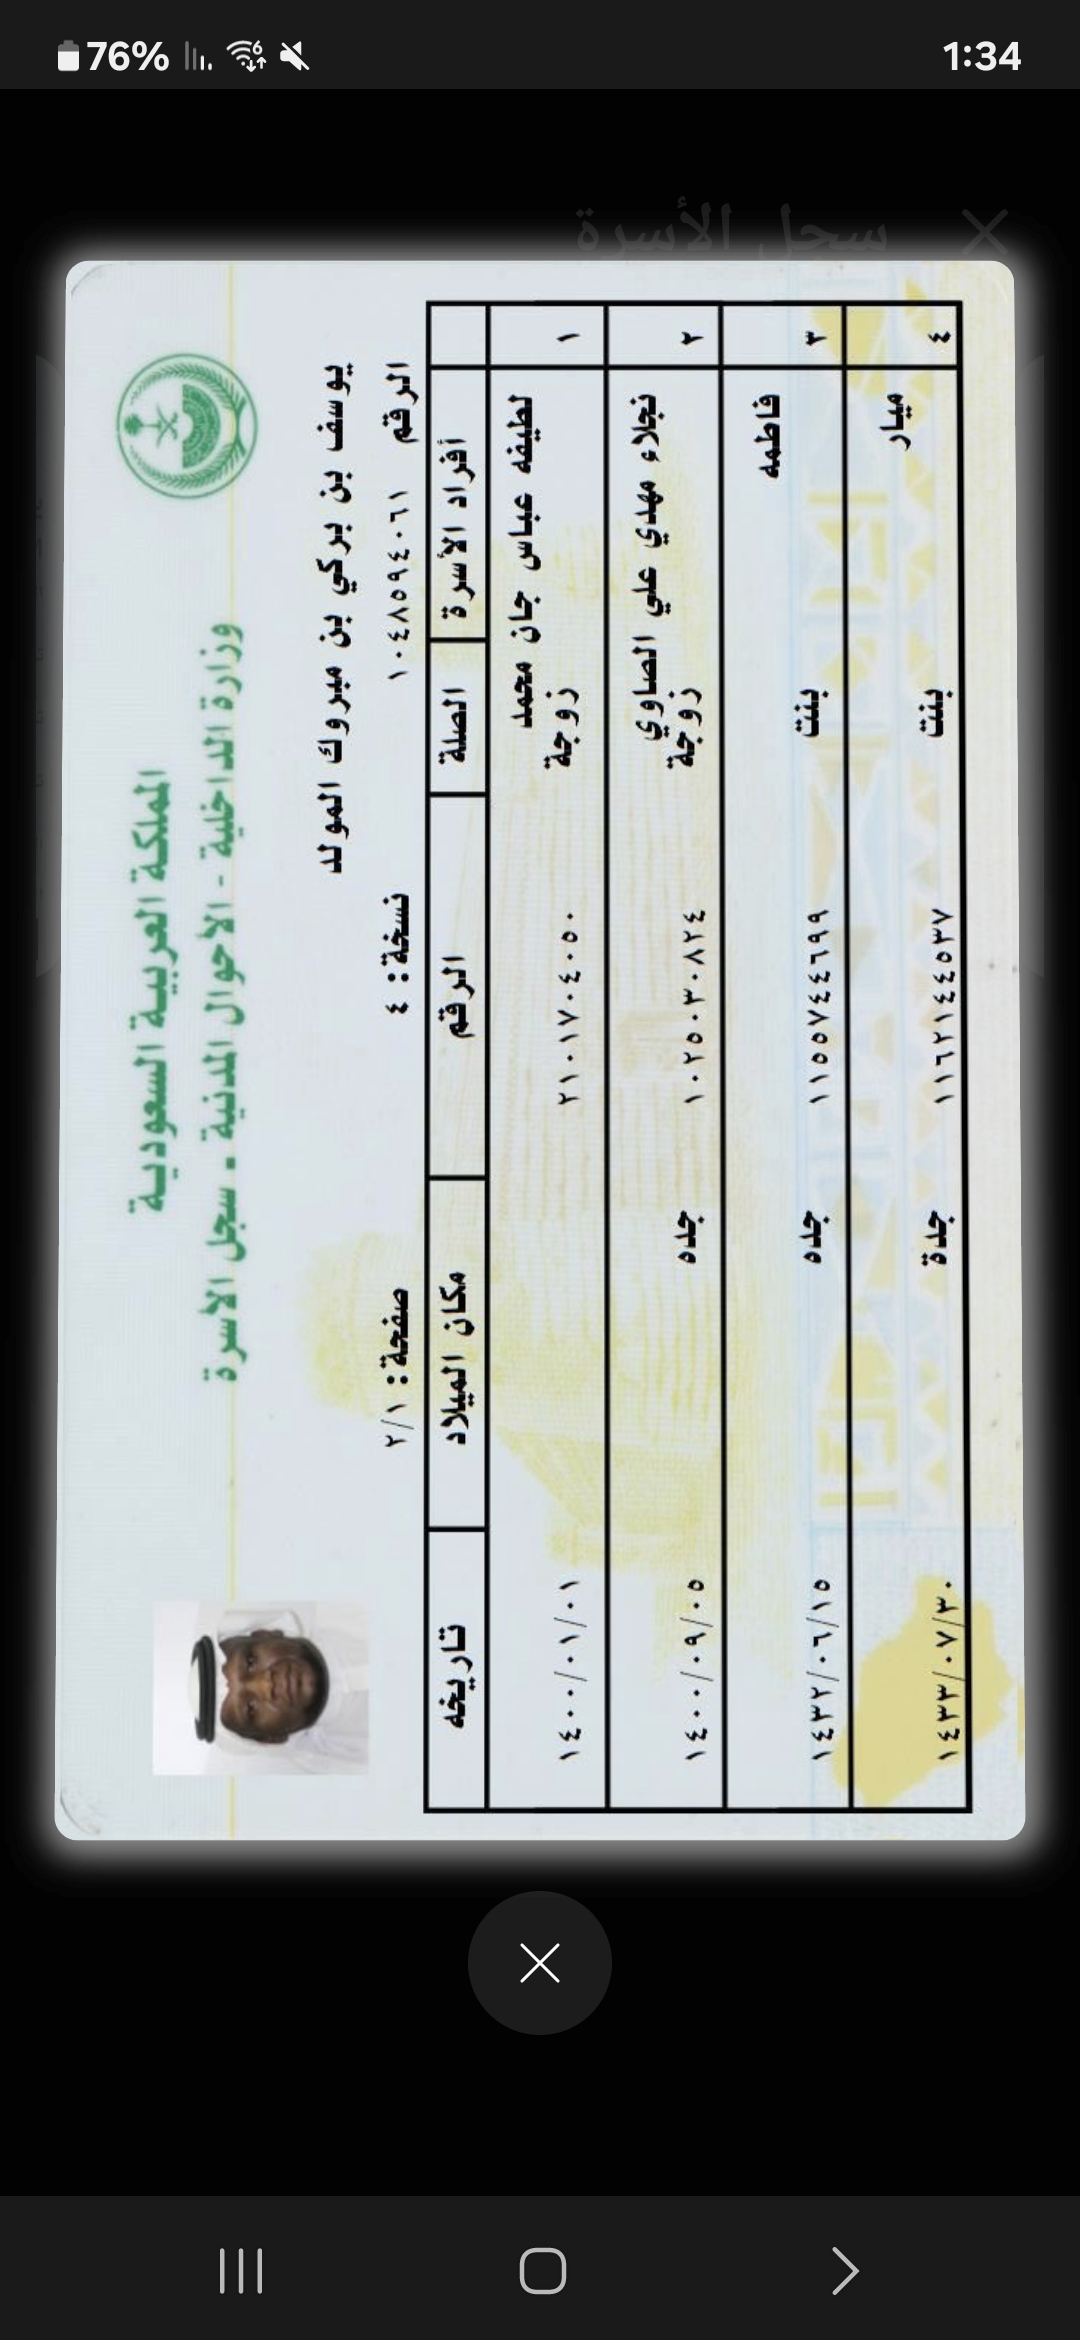 76%
1:34
سجل الأسرة
المملكة العربية السعودية
وزارة الداخلية - الأحوال المدنية - سجل الأسرة
يوسف بن بركي بن مبروك المولد
الرقم ١٠٤٨٥٩٤٠٦١ نسخة: ٤ صفحة: ٢/١
أفراد الأسرة الصلة الرقم مكان الميلاد تاريخه
١ لطيفه عباس جان محمد زوجة ٢١٠١٧٠٤٠٥٠ ١٤٠٠/٠١/٠١
٢ نجلاء مهدي علي الصاوي زوجة ١٠٢٥٠٣٠٨٢٤ جده ١٤٠٠/٠٩/٠٥
٣ فاطمه بنت ١١٥٥٧٤٤٦٩٩ جده ١٤٣٢/٠٦/١٥
٤ ميار بنت ١١٦٢١٤٤٥٣٧ جدة ١٤٣٣/٠٧/٣٠